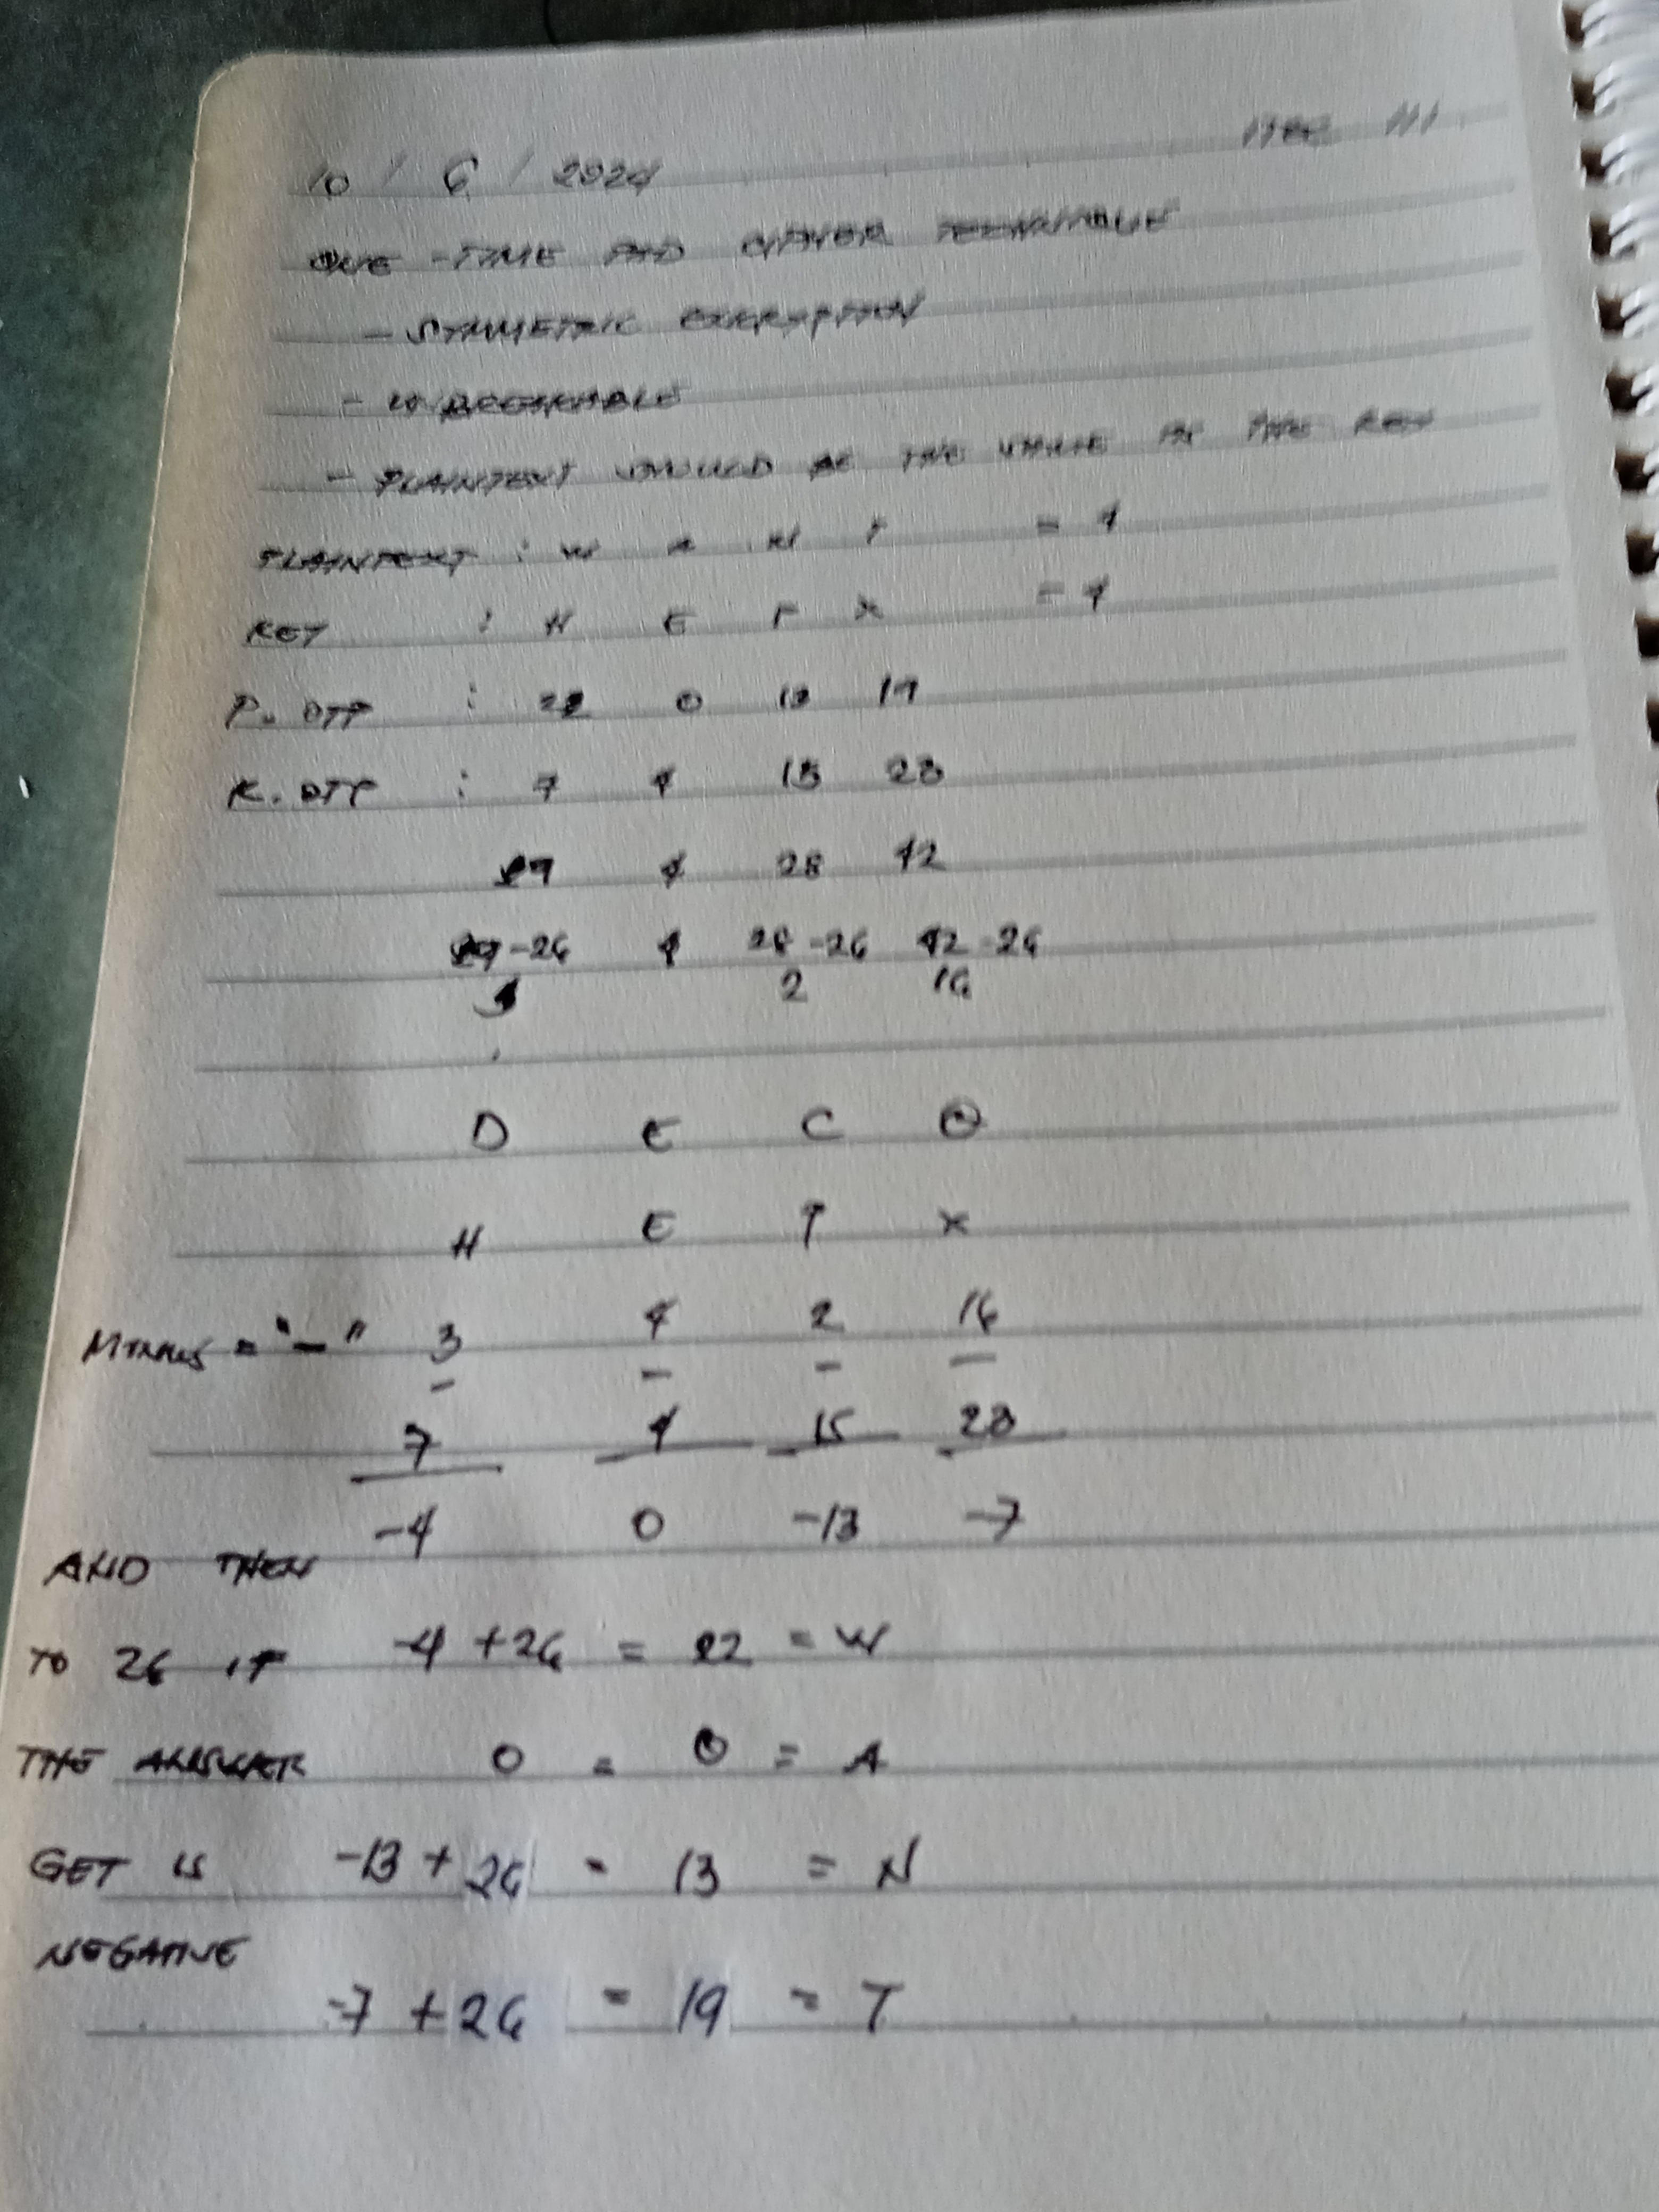 10 / 6 / 2024
ONE -TIME PAD CIPHER TECHNIQUE
- SYMMETRIC ENCRYPTION
- UNBREAKABLE
- PLAINTEXT SHOULD BE THE SAME AS THE KEY
PLAINTEXT : W A N T = 4
KEY : H E P X = 4
P. OTP : 22 0 13 19
K. OTP : 7 4 15 23
29 4 28 42
29-26 4 28-26 42-26
3 2 16
D E C Q
H E P X
MINUS = "-" 3 4 2 16
- - - -
7 4 15 23
-4 0 -13 -7
AND THEN
TO 26 IF -4 +26 = 22 = W
THE ANSWER 0 = 0 = A
GET IS -13 + 26 = 13 = N
NEGATIVE
-7 + 26 = 19 = T